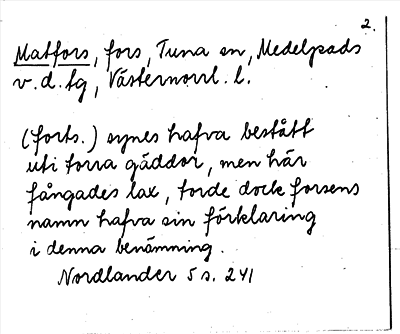 2.
Matfors, fors, Tuna sn, Medelpads
v. d. tg, Västernorrl. l.
(forts.) synes hafva bestått
uti torra gäddor, men här
fångades lax, torde dock forsens
namn hafva sin förklaring
i denna benämning.
Nordlander 5 s. 241